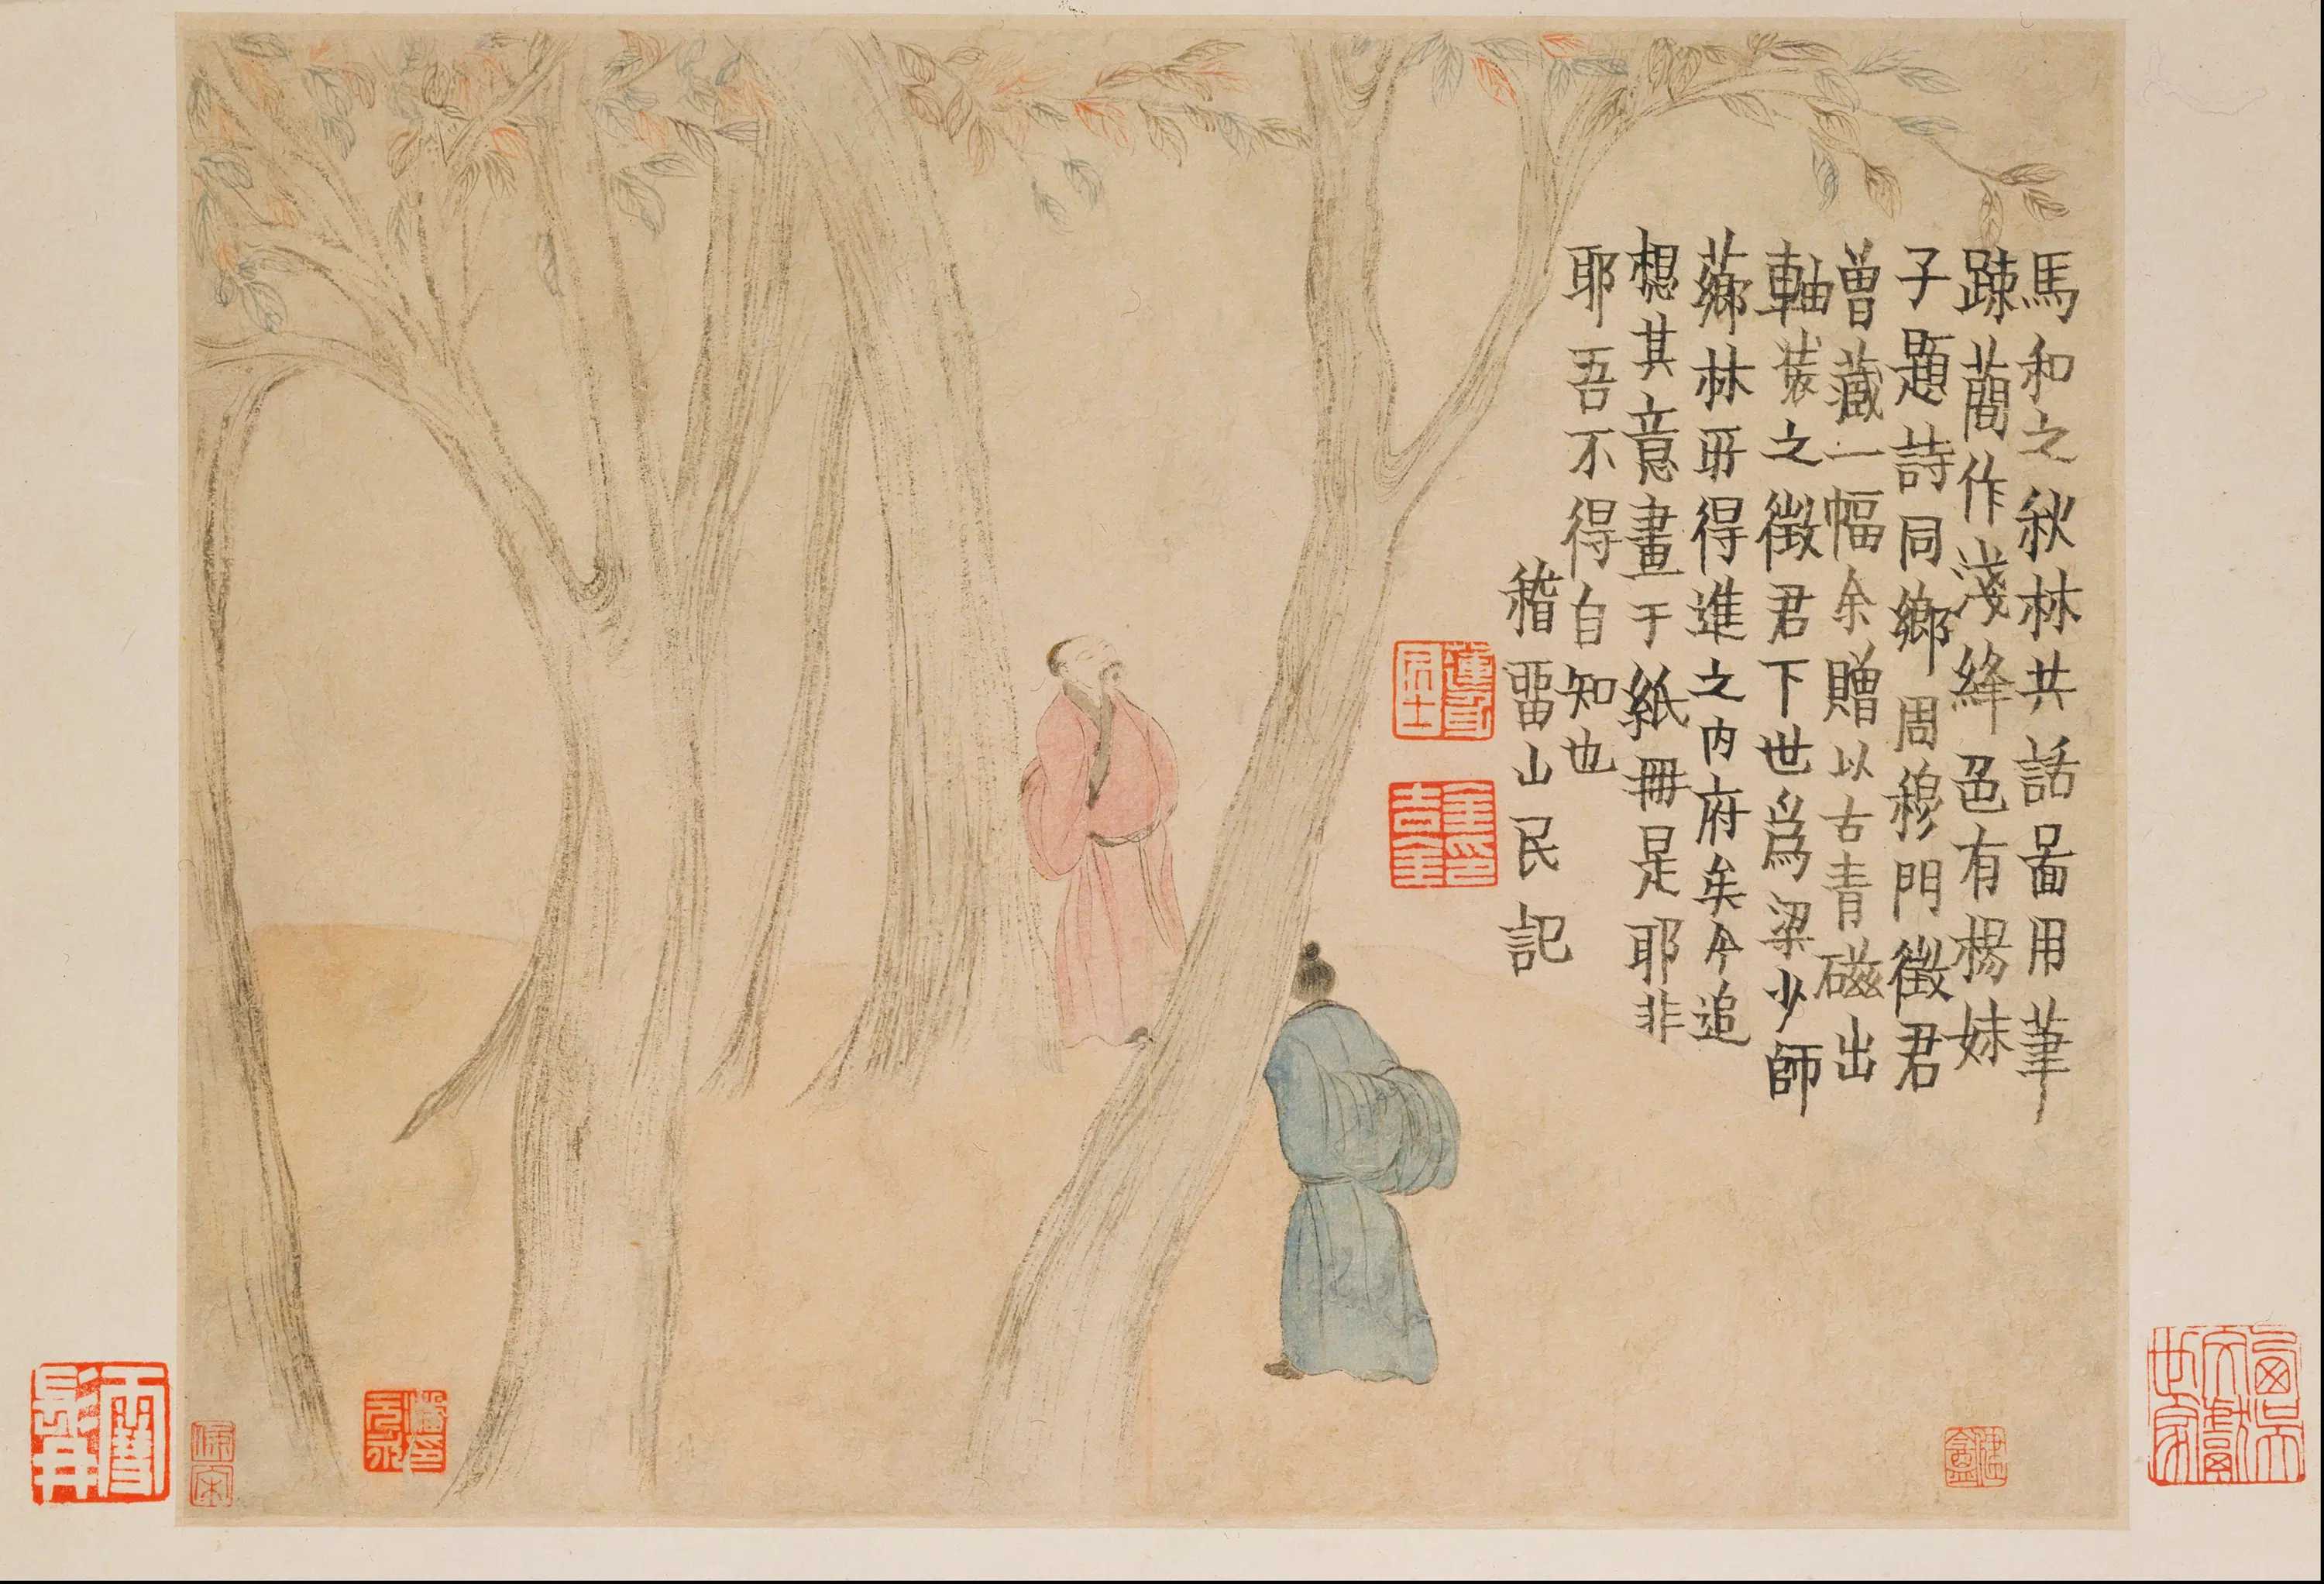 馬和之秋林共話啚用筆
踈蕳作淺絳色有楊妹
子題詩同鄉周穆門徵君
曾藏一幅余贈以古青磁出
軸裝之徵君下世爲梁少師
薌林所得進之内府矣今追
想其意畫于紙冊是耶非
耶吾不得自知也
稽畱山民記
蓮身居士
金印吉金